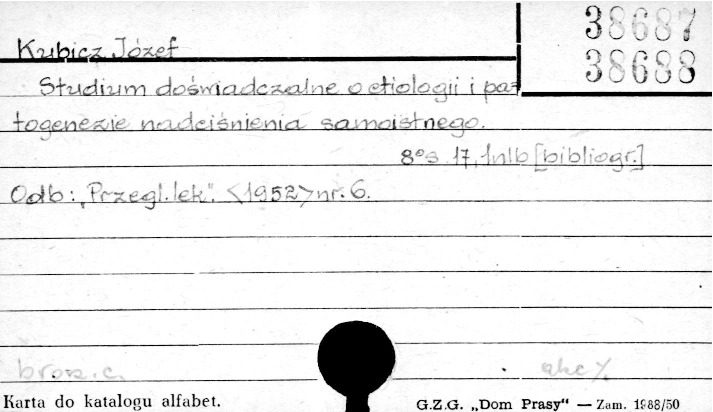 38687
Kubicz Józef
38688
Studium doświadczalne o etiologii i pa-
togenezie nadciśnienia samoistnego.
8° s. 17, 1nlb [bibliogr.]
Odb: „Przegl. lek". <1952> nr. 6.
brosz. c.
Karta do katalogu alfabet.
G.Z.G. „Dom Prasy" — Zam. 1988/50